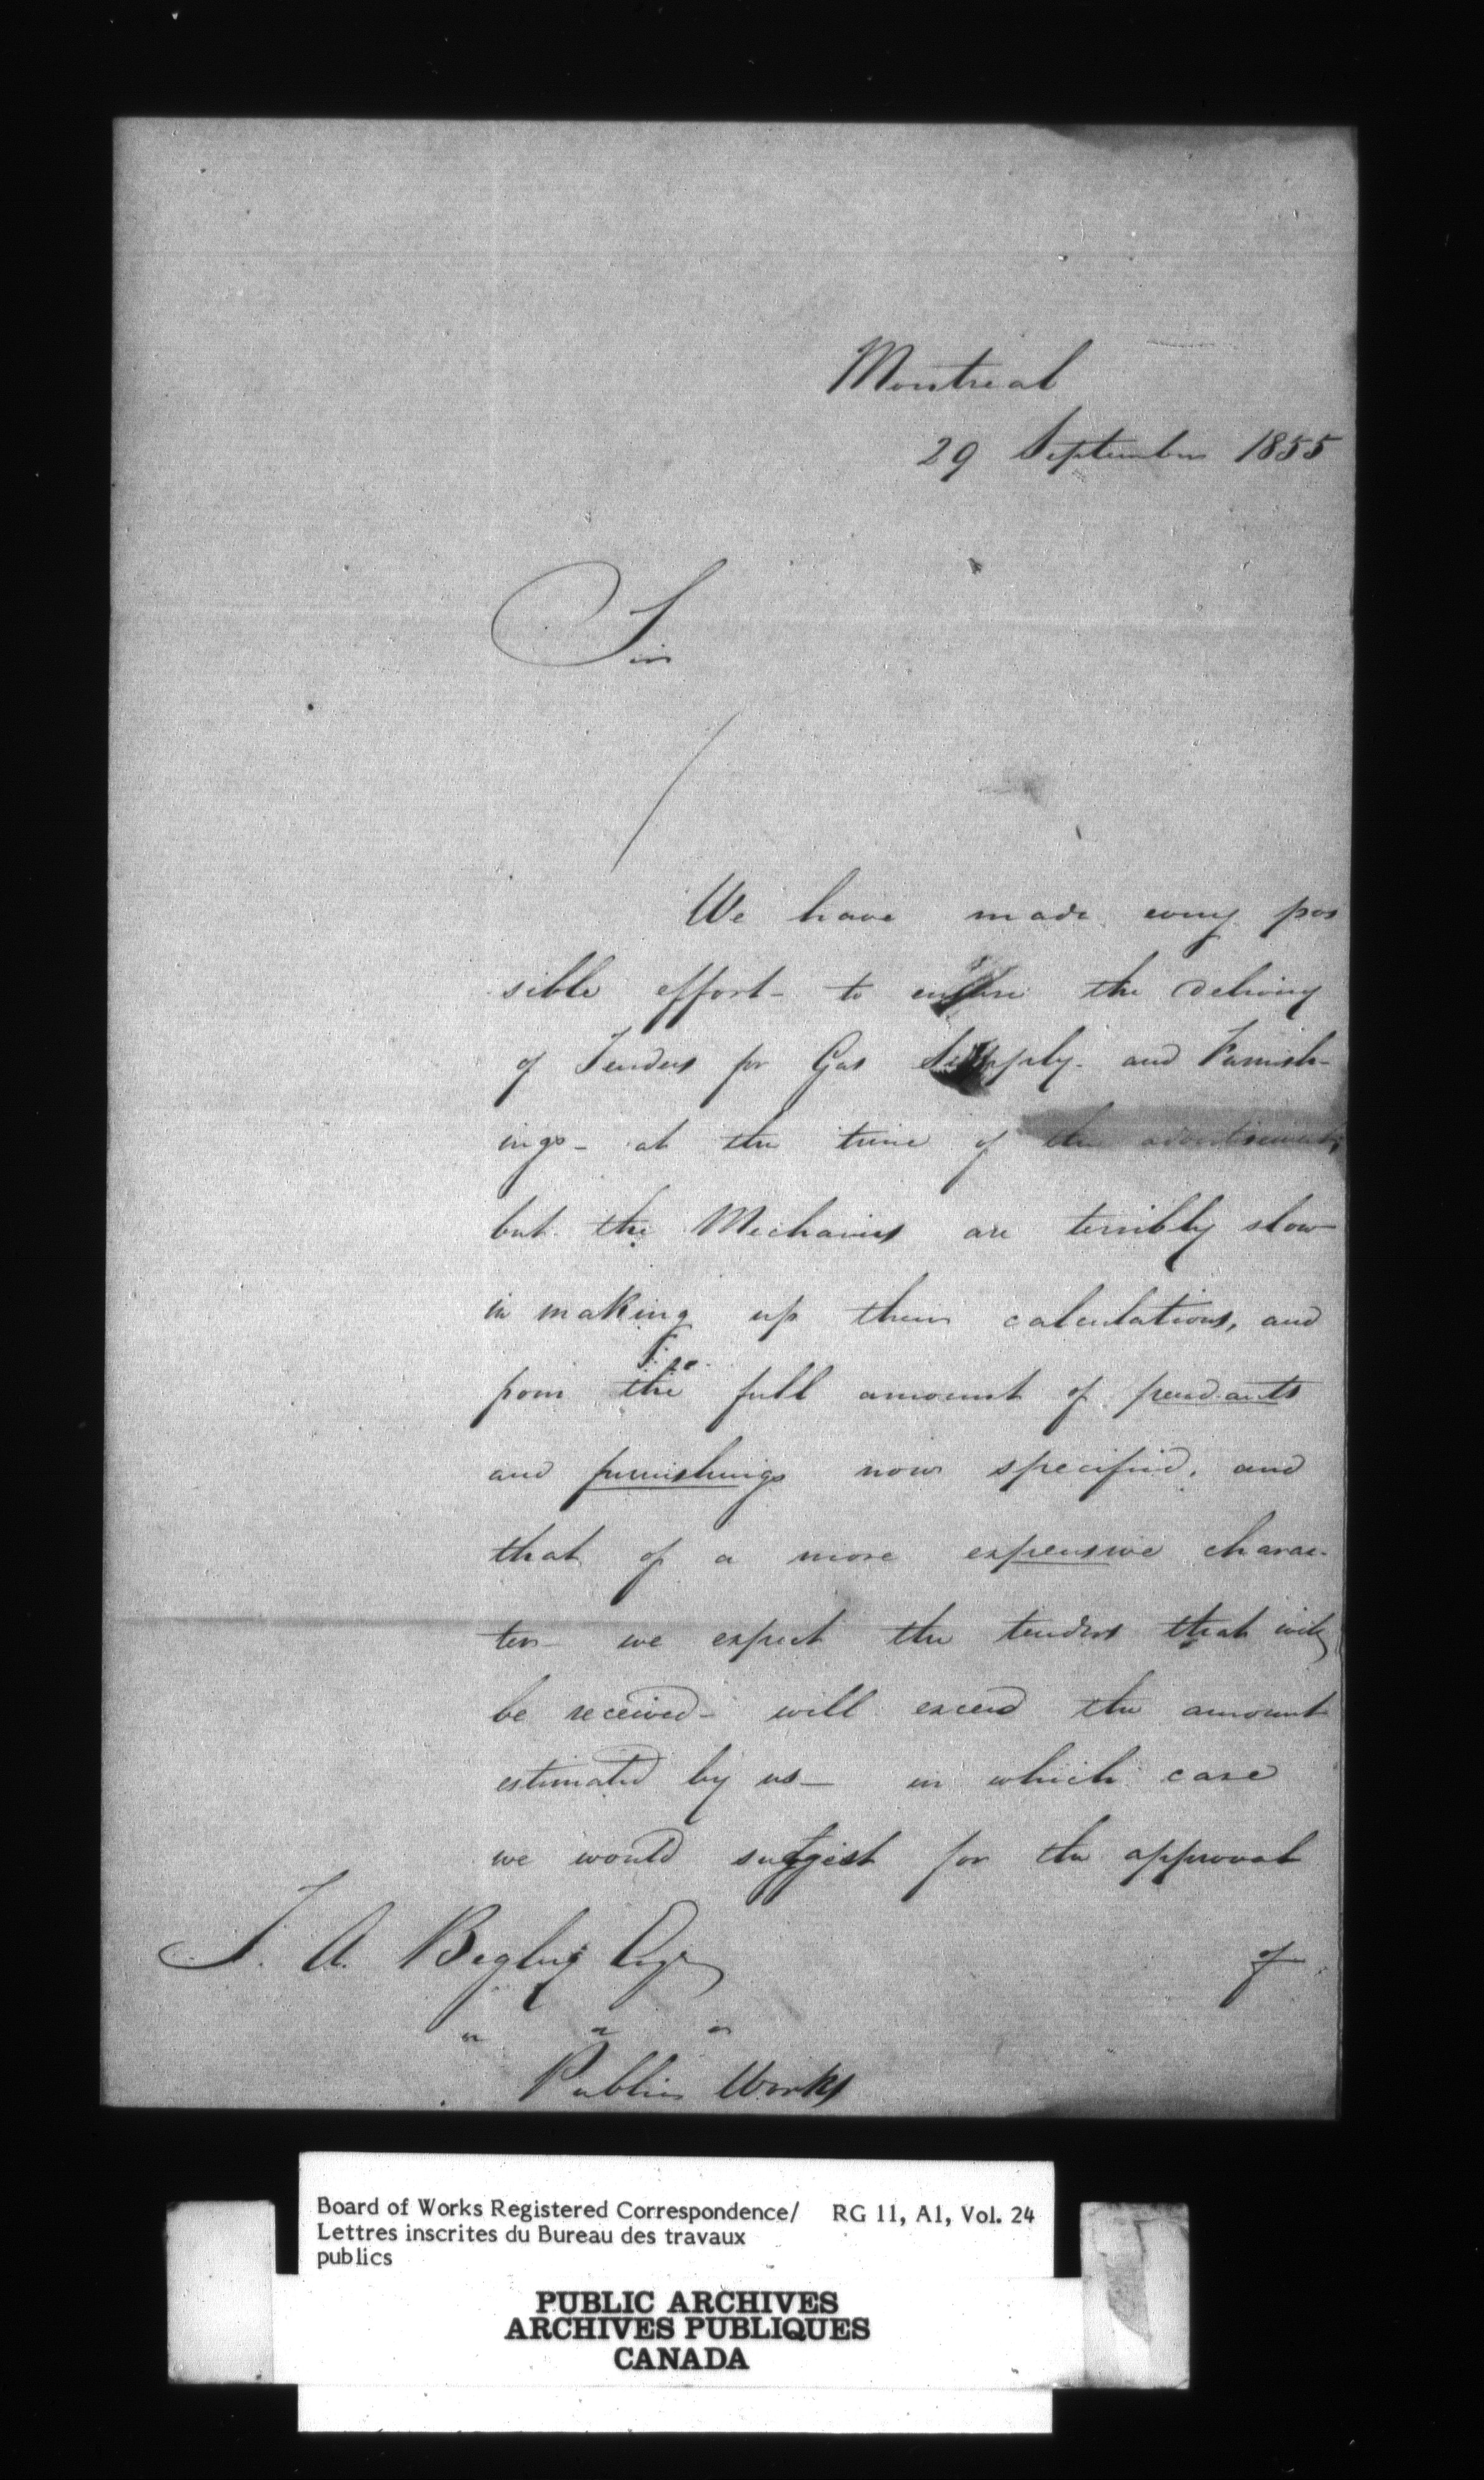 Montreal
29 September 1855
Sir
We have made every pos
sible effort - to ensure the delivery
of Tenders for Gas Supply - and Furnish-
ings - at the time of the advertisement,
but the Mechanics are terribly slow
in making up their calculations, and
from the full amount of pendants
and furnishings now specified, and
that of a more expensive charac-
ter - we expect the tenders that will
be received - will exceed the amount
estimated by us - in which case
we would suggest for the approval
of
T. A. Begley Esqr
" " "
Public Works
Board of Works Registered Correspondence/ RG 11, A1, Vol. 24
Lettres inscrites du Bureau des travaux
publics
PUBLIC ARCHIVES
ARCHIVES PUBLIQUES
CANADA